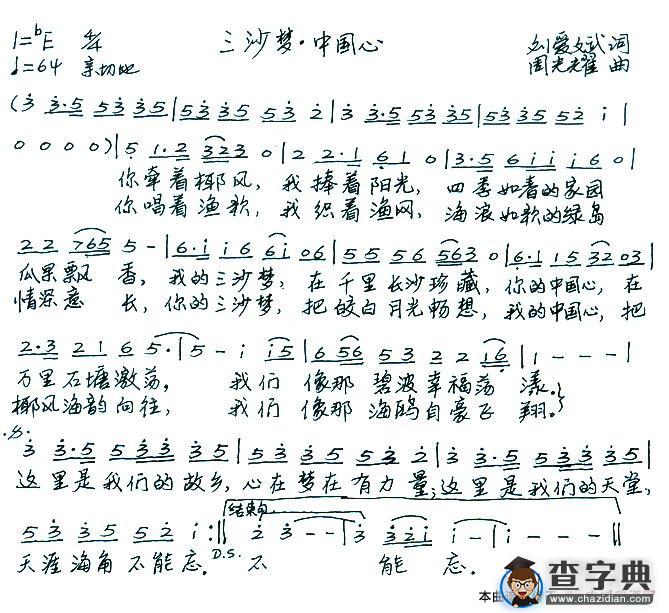 三沙梦·中国心
1=ᵇE 4/4
刘爱斌词
♩=64 亲切地
周光耀曲
(3 3·5 53 35|53 35 53 2|3 3·5 53 35|53 35 52 i|
0 0 0 0)|5 1·2 323 0|2 2·1 61 0|3·5 6i i i6 0|
你牵着椰风，我捧着阳光，四季如春的家园
你唱着渔歌，我织着渔网，海浪如歌的绿岛
2 2 765 5 -|6·i i6 6i 06|55 56 563 0|6·1 15 32 03|
瓜果飘香，我的三沙梦，在千里长沙珍藏，你的中国心，在
情深意长，你的三沙梦，把皎白月光畅想，我的中国心，把
2·3 21 6 5·|5 - i i5|6 56 53 2 2 16|1 - - -|
万里石塘激荡，我们像那碧波幸福荡漾。
椰风海韵向往，我们像那海鸥自豪飞翔。
3 3·5 533 35|53 35 53 2|3 3·5 533 35|
这里是我们的故乡，心在梦在有力量，这里是我们的天堂，
结束句
53 35 52 i :‖ 2 3 - -|3 32i i -|i - - -‖
天涯海角不能忘。D.S. 不能忘。
本曲
查字典
www.chazidian.com